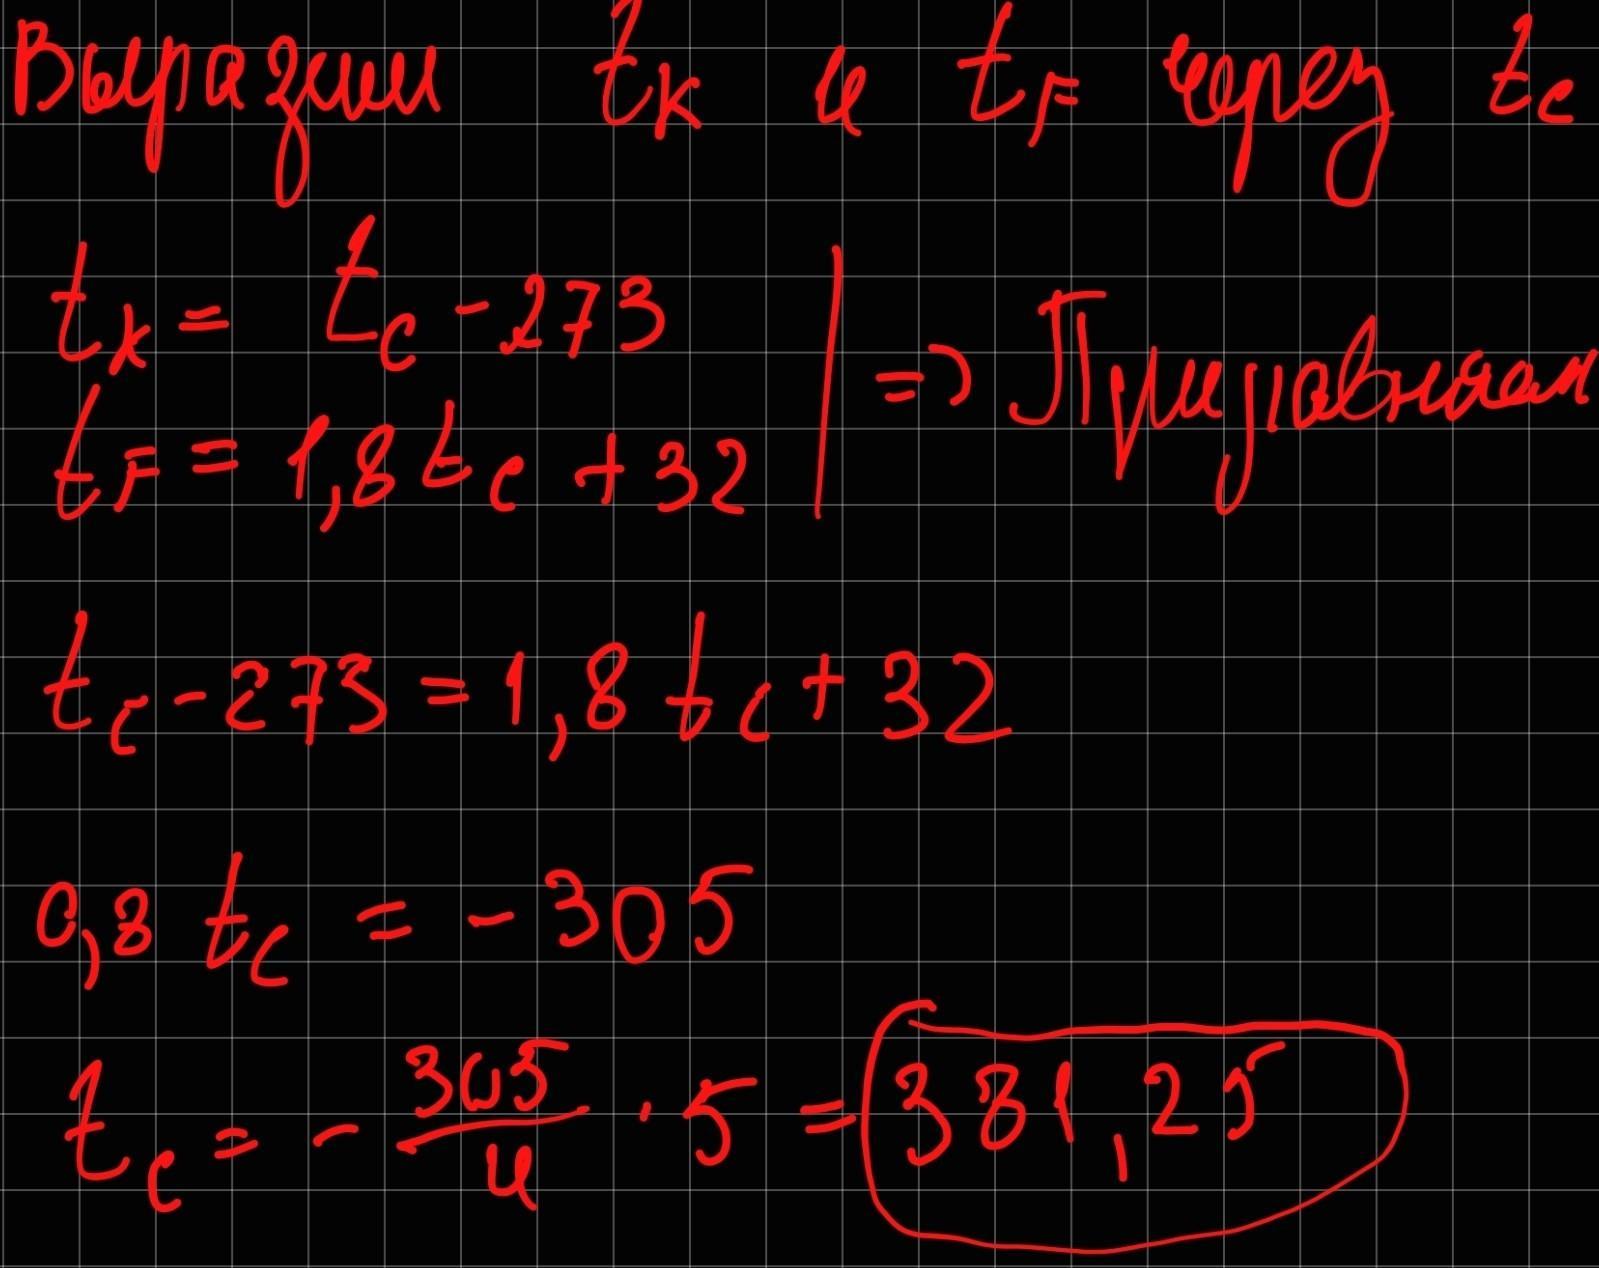 Выразим t_K и t_F через t_C
t_K = t_C - 273
t_F = 1,8 t_C + 32 | => Приравняем
t_C - 273 = 1,8 t_C + 32
0,8 t_C = - 305
t_C = - 305/4 · 5 = 381,25